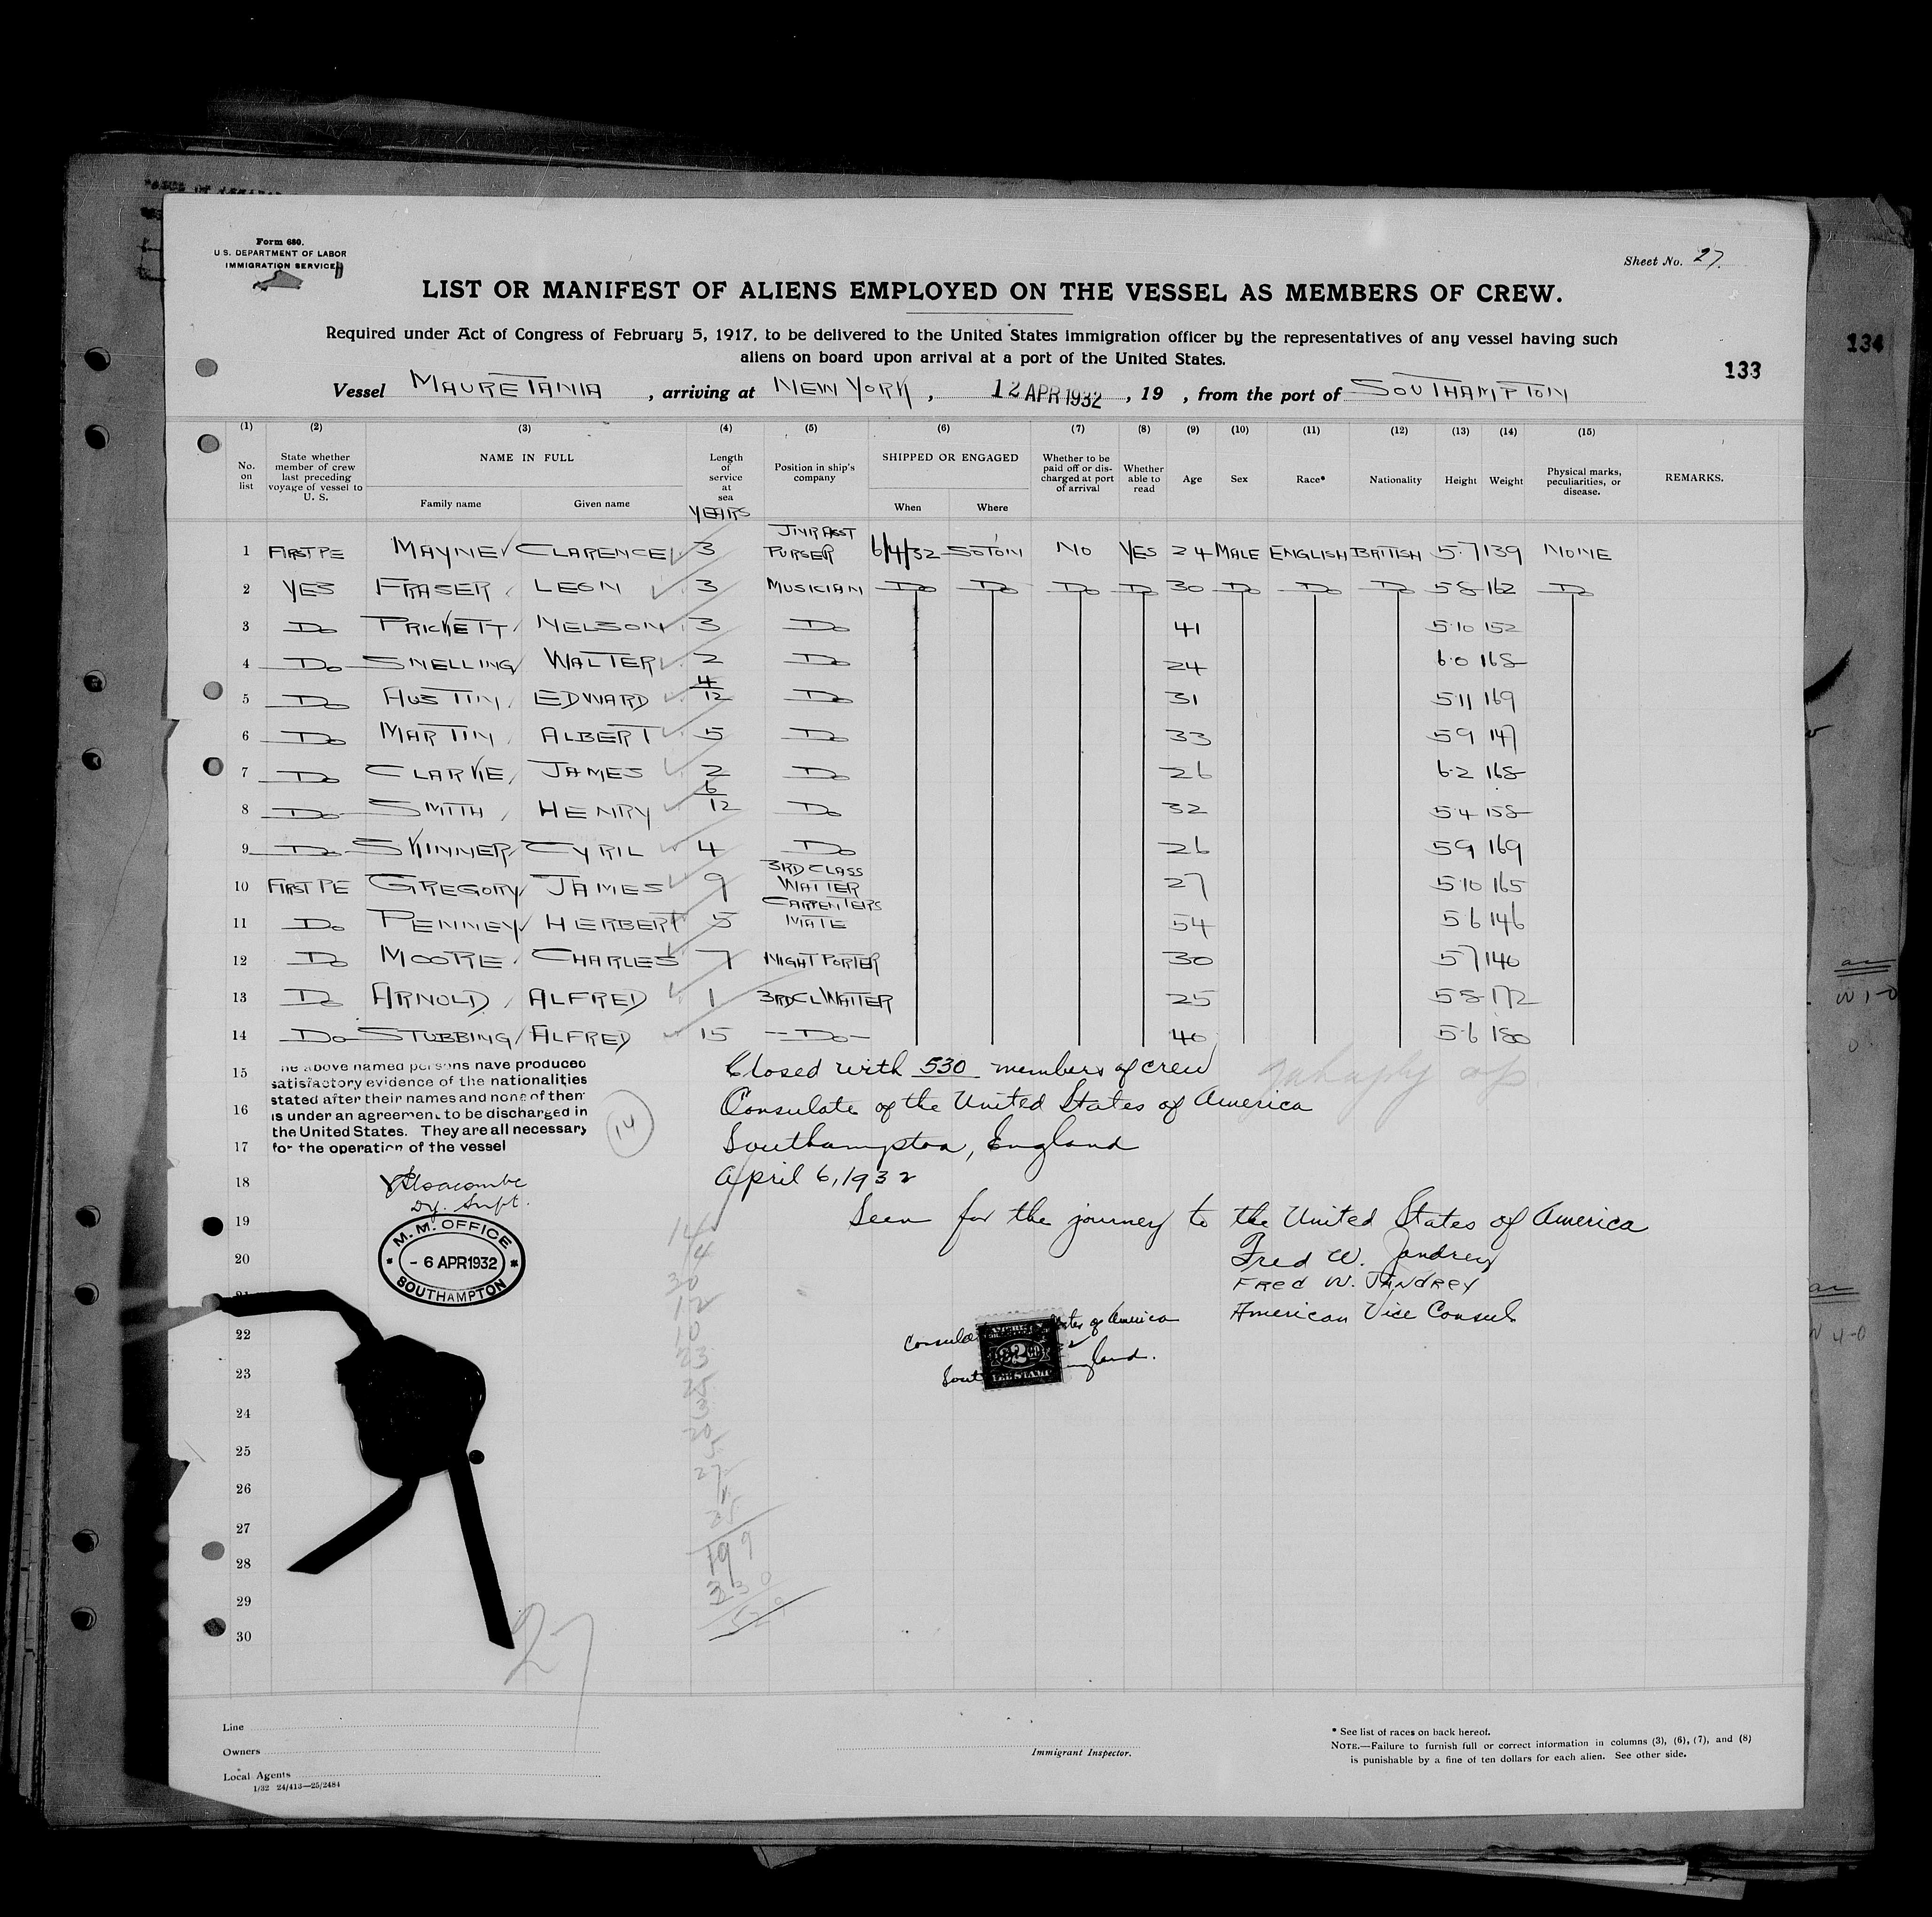 Form 680.
U.S. DEPARTMENT OF LABOR
IMMIGRATION SERVICE
Sheet No. 27.
LIST OR MANIFEST OF ALIENS EMPLOYED ON THE VESSEL AS MEMBERS OF CREW.
Required under Act of Congress of February 5, 1917, to be delivered to the United States immigration officer by the representatives of any vessel having such
aliens on board upon arrival at a port of the United States.
133
134
Vessel MAURETANIA , arriving at NEW YORK , 12 APR 1932 , 19 , from the port of SOUTHAMPTON
(1) (2) (3) (4) (5) (6) (7) (8) (9) (10) (11) (12) (13) (14) (15)
No. on list State whether member of crew last preceding voyage of vessel to U. S. NAME IN FULL Family name Given name Length of service at sea YEARS Position in ship's company SHIPPED OR ENGAGED When Where Whether to be paid off or discharged at port of arrival Whether able to read Age Sex Race* Nationality Height Weight Physical marks, peculiarities, or disease. REMARKS.
1 FIRST PE MAYNE CLARENCE 3 JNR ASST PURSER 6/4/32 SOTON NO YES 24 MALE ENGLISH BRITISH 5·7 139 NONE
2 YES FRASER LEON 3 MUSICIAN Do Do Do Do 30 Do Do Do 5 8 162 Do
3 Do PRICKETT NELSON 3 Do 41 5·10 152
4 Do SNELLING WALTER 2 Do 24 6·0 168
5 Do AUSTIN EDWARD 4/12 Do 31 5·11 169
6 Do MARTIN ALBERT 5 Do 33 5 9 147
7 Do CLARKE JAMES 2 Do 26 6·2 168
8 Do SMITH HENRY 6/12 Do 32 5·4 158
9 Do SKINNER CYRIL 4 Do 26 5 9 169
10 FIRST PE GREGORY JAMES 9 3RD CLASS WAITER 27 5·10 165
11 Do PENNEY HERBERT 5 CARPENTERS MATE 54 5 6 146
12 Do MOORE CHARLES 7 NIGHT PORTER 30 5 7 140
13 Do ARNOLD ALFRED 1 3RD CL WAITER 25 5 8 172
14 Do STUBBING ALFRED 15 Do 40 5·6 180
15
16
17
18
19
20
21
22
23
24
25
26
27
28
29
30
he above named persons have produced
satisfactory evidence of the nationalities
stated after their names and none of them
is under an agreement to be discharged in
the United States. They are all necessary
for the operation of the vessel
14
Dy. Supt.
M.M. OFFICE
- 6 APR 1932
SOUTHAMPTON
Closed with 530 members of crew
Consulate of the United States of America
Southampton, England
April 6, 1932
Seen for the journey to the United States of America
Fred W. Jandrey
FRED W. JANDREY
American Vice Consul
of America
England.
199
330
529
27
Line
Owners
Local Agents
1/32 24/413—25/2484
Immigrant Inspector.
* See list of races on back hereof.
NOTE.—Failure to furnish full or correct information in columns (3), (6), (7), and (8)
is punishable by a fine of ten dollars for each alien. See other side.